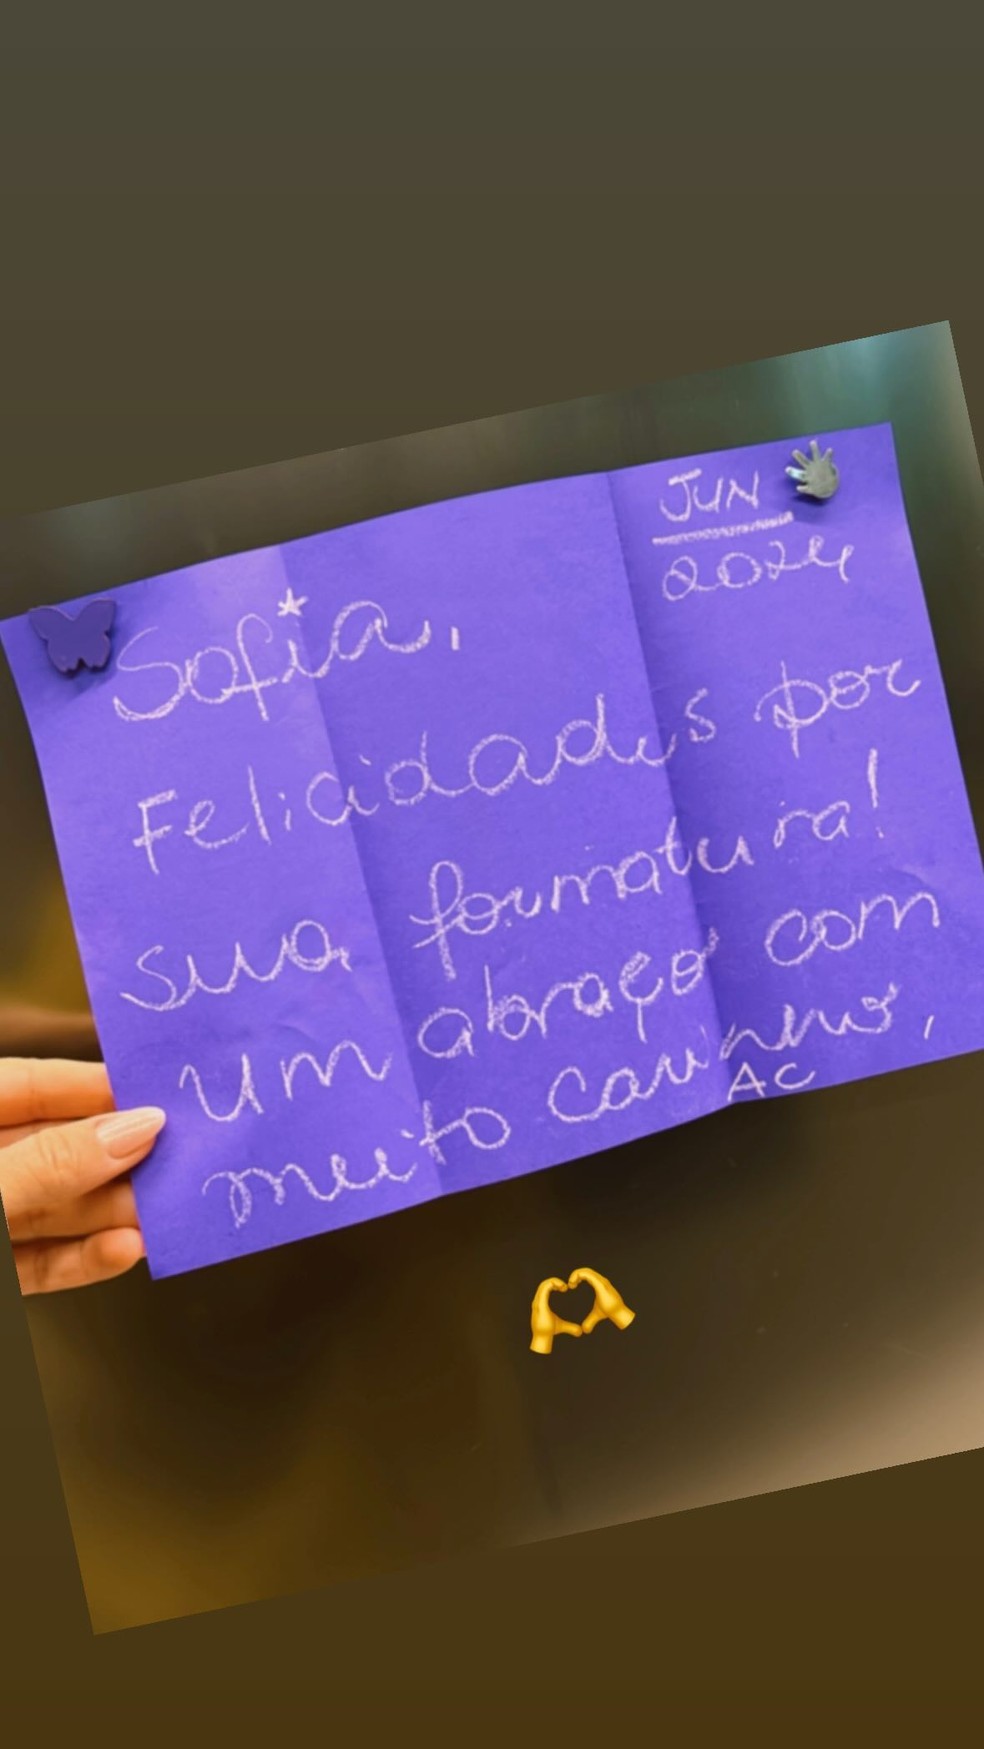 JUN
2024
Sofia,
Felicidades por
sua formatura!
Um abraço com
muito carinho,
AC